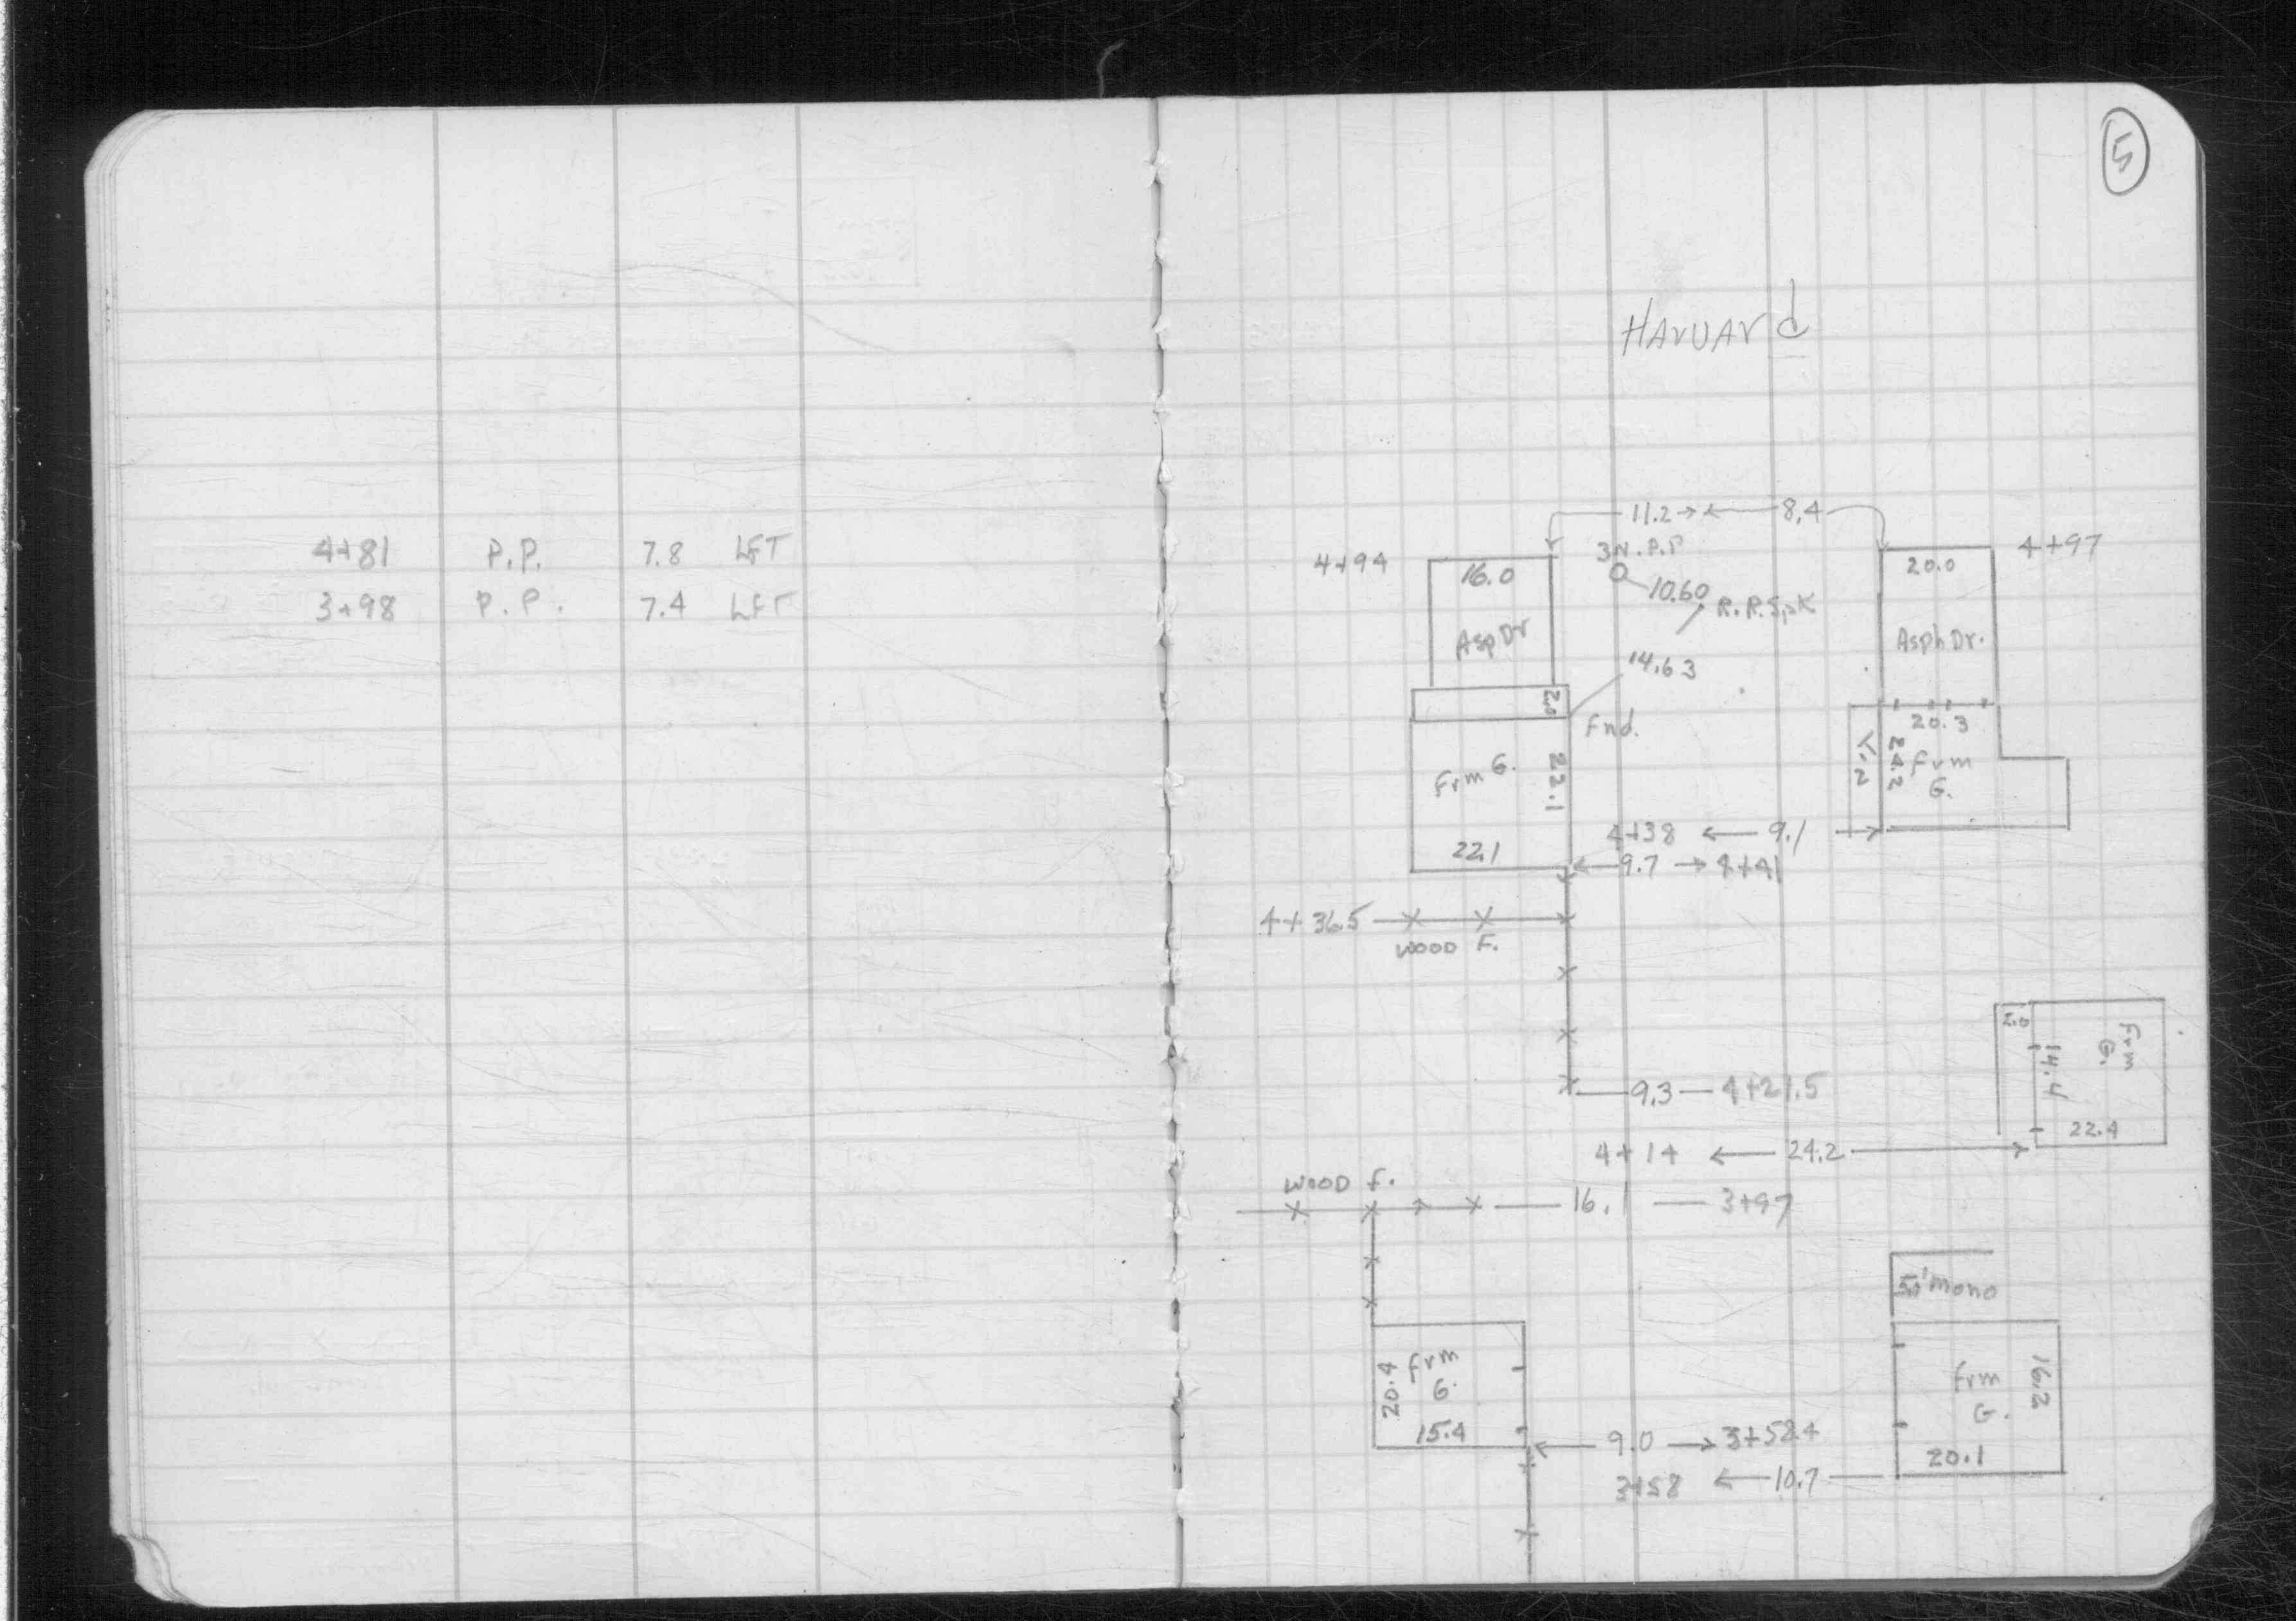 5
HArVArd
4+81 P.P. 7.8 LFT
3+98 P.P. 7.4 LFT
11.2 8.4
3N.P.P
4+94 16.0 20.0 4+97
10.60 R.R.Spk
Asp Dr Asph Dr.
14.63
2.0
Fnd.
20.3
Frm G. 22.1 24.2 Frm G.
4+38 9.1
22.1 9.7 4+41
4+36.5
WOOD F.
2.0 Frm G.
14.4
9.3 4+21.5
22.4
4+14 24.2
WOOD F.
16.1 3+97
5.0' mono
20.4 frm G. frm G. 16.2
15.4 9.0 3+58.4
20.1
3+58 10.7